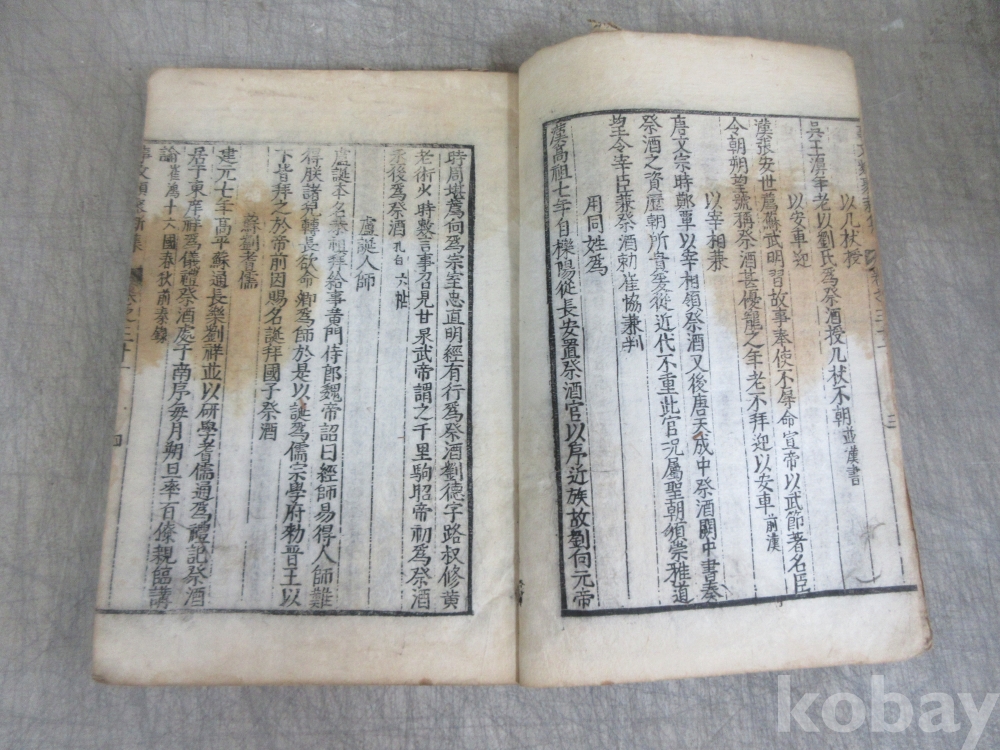 以几杖授
吳王濞年老以劉氏爲祭酒授几杖不朝並漢書
以安車迎
漢張安世爲蘇武明習故事奉使不辱命宣帝以武節著名臣
令朝朔望號稱祭酒甚優寵之年老不拜迎以安車前漢
以宰相兼
唐文宗時鄭覃以宰相領祭酒又後唐天成中祭酒闕中書奏
祭酒之資歷朝所貴爰從近代不重此官况屬聖朝須崇雅道
望令宰臣兼祭酒勅崔協兼判
用同姓爲
漢高祖七年自櫟陽從長安置祭酒官以序近族故劉向元帝
時周堪薦向爲宗室忠直明經有行爲祭酒劉德字路叔修黃
老術火時數言事召見甘泉武帝謂之千里駒昭帝初爲祭酒
丞後爲祭酒孔白六帖
盧誕人師
盧誕本名恭祖拜給事黃門侍郎魏帝詔曰經師易得人師難
得朕諸兒轉長欲命卿爲師於是以誕爲儒宗學府勑晉王以
下皆拜之於帝前因賜名誕拜國子祭酒
蘇劉耆儒
建元七年高平蘇通長樂劉祥並以研學耆儒通爲禮記祭酒
居于東庠祥爲儀禮祭酒處于南序每月朔旦率百僚親臨講
論崔鴻十六國春秋前秦錄
kobay